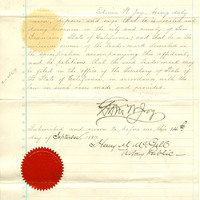 Edwin W. Joy, being duly
sworn, deposes and says that he is a resident
and citizen in the city and county of San
Francisco, State of California; and that he is the
owner of the trade mark described in
the application accompanying this affidavit;
and he petitions that the said trade mark may
be filed in the office of the Secretary of State of
the State of California, in accordance with the
law in such case made and provided.
Edwin W. Joy
Subscribed and sworn to before me this
day of September 1887.
Notary Public